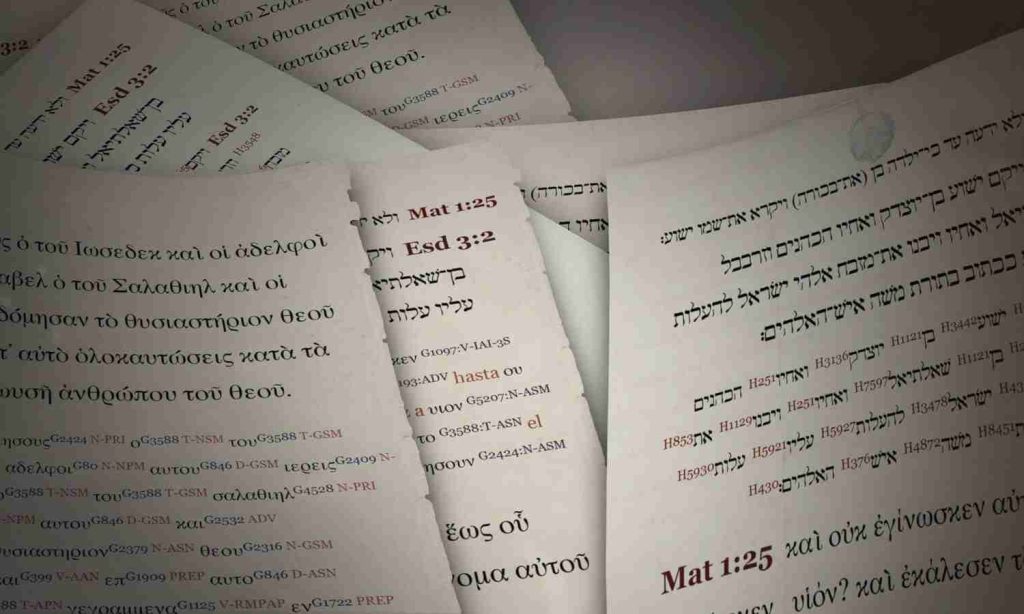 3:2
Mat 1:25
ולא
Esd 3:2
ויקם
בן־שאלתיאל
עליו עלות
Esd 3:2
H3548
ὁ τοῦ Σαλαθιηλ
τὸ θυσιαστήριον
κατὰ τὰ
τοῦ θεοῦ.
του G3588 T-GSM
ιερεις G2409 N-
N-PRI
ὁ τοῦ Ιωσεδεκ καὶ οἱ ἀδελφοὶ
ὁ τοῦ Σαλαθιηλ καὶ οἱ
τὸ θυσιαστήριον θεοῦ
αὐτὸ ὁλοκαυτώσεις κατὰ τὰ
ἀνθρώπου τοῦ θεοῦ.
G2424 N-PRI ο G3588 T-NSM του G3588 T-GSM
αδελφοι G80 N-NPM αυτου G846 D-GSM ιερεις G2409 N-
G3588 T-NSM του G3588 T-GSM σαλαθιηλ G4528 N-PRI
-NPM αυτου G846 D-GSM και G2532 ADV
G2379 N-ASN θεου G2316 N-GSM
G399 V-AAN επ G1909 PREP αυτο G846 D-ASN
T-APN γεγραμμενα G1125 V-RMPAP εν G1722 PREP
Mat 1:25 ולא
Esd 3:2
בן־שאלתיא
עליו עלות
κεν G1097:V-IAI-3S
193:ADV hasta ου
a υιον G5207:N-ASM
το G3588:T-ASN el
ησουν G2424:N-ASM
ἕως οὗ
ομα αὐτοῦ
את־בכורה)
ולא ידעה עד כי־ילדה בן (את־בכורה) ויקרא את־שמו ישוע׃
ויקם ישוע בן־יוצדק ואחיו הכהנים וזרבבל
ואחיו ויבנו את־מזבח אלהי ישראל להעלות
ככתוב בתורת משה איש־האלהים׃
ישוע H3442 בן H1121 יוצדק H3136 ואחיו H251 הכהנים
בן H1121 שאלתיאל H7597 ואחיו H251 ויבנו H1129 את H853
ישראל H3478 להעלות H5927 עליו H5921 עלות H5930
H8451 משה H4872 איש H376 האלהים׃ H430
Mat 1:25 καὶ οὐκ ἐγίνωσκεν αὐ
υἱόν? καὶ ἐκάλεσεν τ